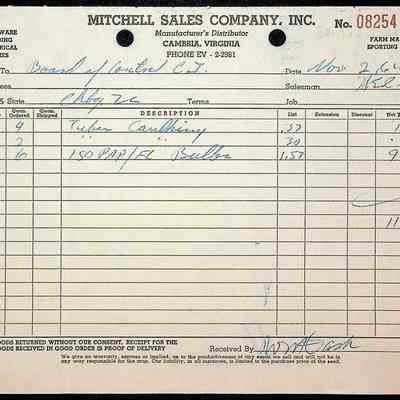 WARE MITCHELL SALES COMPANY, INC. No. 08254
Manufacturer's Distributor FARM MA
CAMBRIA, VIRGINIA SPORTING
PHONE EV - 2-2981
To Board of Control C.I. Date Nov. 2, 64
Salesman
& State Terms Job
Quan. Ordered Quan. Shipped DESCRIPTION List Extension Discount Net
4 Tubes Caulking .37
2 " " 30
6 150 PAR/FL Bulbs 1.57 9
11
GOODS RETURNED WITHOUT OUR CONSENT. RECEIPT FOR THE
GOODS RECEIVED IN GOOD ORDER IS PROOF OF DELIVERY Received By
We give no warranty, express or implied, as to the productiveness of any seeds we sell and will not be in
any way responsible for the crop. Our liability, in all instances, is limited to the purchase price of the seed.